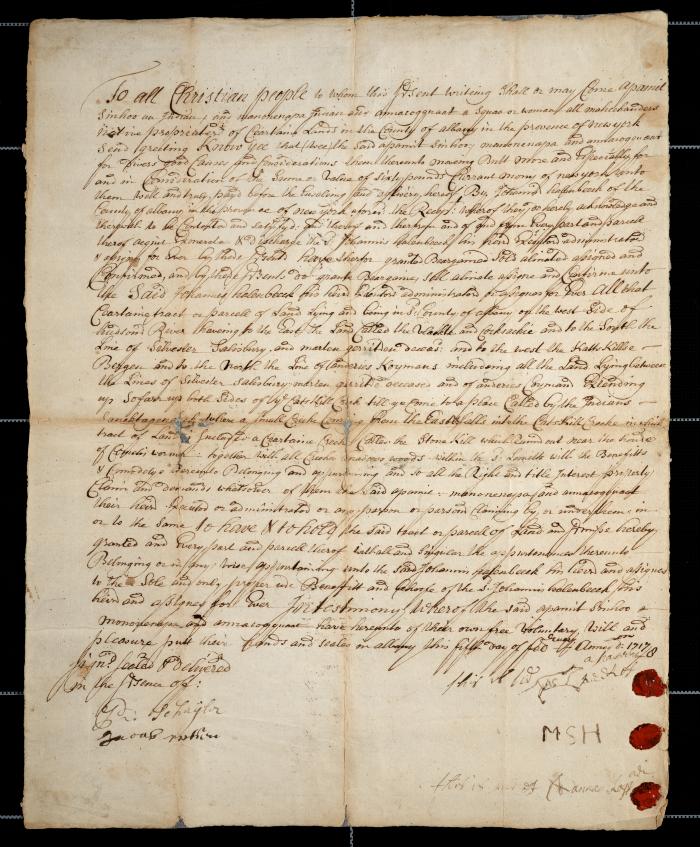 To all Christian people to whom this p'sent writing Shall or may Come apamit
Sinhoo an Indian, and manonenapa Indian and amaroqquaat a Squae or woman all mahekanders
native propriaters of Ceartain Lands in the County of albany in the provence of new york
Send greeting Know yee that wee the said apamit sinhoo, manonenapa and amaroqquaat
for Divers good Causes and Considerations them thereunto moveing Butt more and Especially for
and in Consideration of the Sume or value of Sixty pounds Currant mony of new york unto
them well and truly payd before the Ensealing and delivery hereof By Johannis halenbeeck of the
County of albany in the province of new york afores: the Receipt wherof they do hereby acknowledge and
therwith to be Contented and satisfyed and thereby and therfrom and of and from Every part and parcell
therof acquit Exonerate & Discharge the s: Johannis halenbeeck his heirs Executors administrators
& assigns for Ever by these p'sents have therfor granted Bearganed Sold alinated assigned and
Confirmed, and by these p'sents do grant Beargaine, sell alinate assigne and Confirme unto
the Said Johannis halenbeeck his heirs Executors administrators or assigns for Ever All that
Ceartaine tract or parcell of Land Lying and being in s: County of albany on the west Side of
hudsons River haveing to the East the Land Called the Vlackte and Cocksackie and to the South the
Line of Silvester Salisbury and marten gerritsen deceas: and to the west the Katts Kills
Bergen and to the North the Line of andries Koymans includeing all the Land Lying between
the Lines of Silvester Salisbury marten gerritse deceased and of andries Coymans Extending
up Sofarr up both Sides of the Catts kill Creek till you come to a place Called by the Indians
where a Small Creek Comeing from the East falls into the Cats kill Creeke in which
tract of Land is Included a Ceartaine Creek Called the Stone Kill which Land out near the house
of together with all Creeks meadows woods within the s: Limitts with the Benefitts
& Comodetys thereunto Belonging and appurtaining and so all the Right and title Interest property
Claim and demands whatsoever of them the Said apamit manonenapa and amaroqquaat
their heirs Executors or administrators or any person or persons Claiming by, or under them in
or to the Same to have & to hold the said tract or parcell of Land and p'mises hereby
granted and Every part and parcell therof with all and Singular the appurtenances thereunto
Belonging or in any wise appertaining unto the Said Johannis halenbeeck his heirs and assignes
to the Sole and only proper use Benefitt and behoofe of the s: Johannis halenbeeck his
heirs and assignes for Ever In testimony wherof the said apamit Sinhoo
manonenapa and amaroqquaat have hereunto of their own free Voluntary will and
pleasure putt their hands and Seales in albany this fifth day of feb: Annoq: D: 1717/8
Sign'd Sealed & Delivered
in the p'sence off:
P: Schuyler
Jacob
MSH